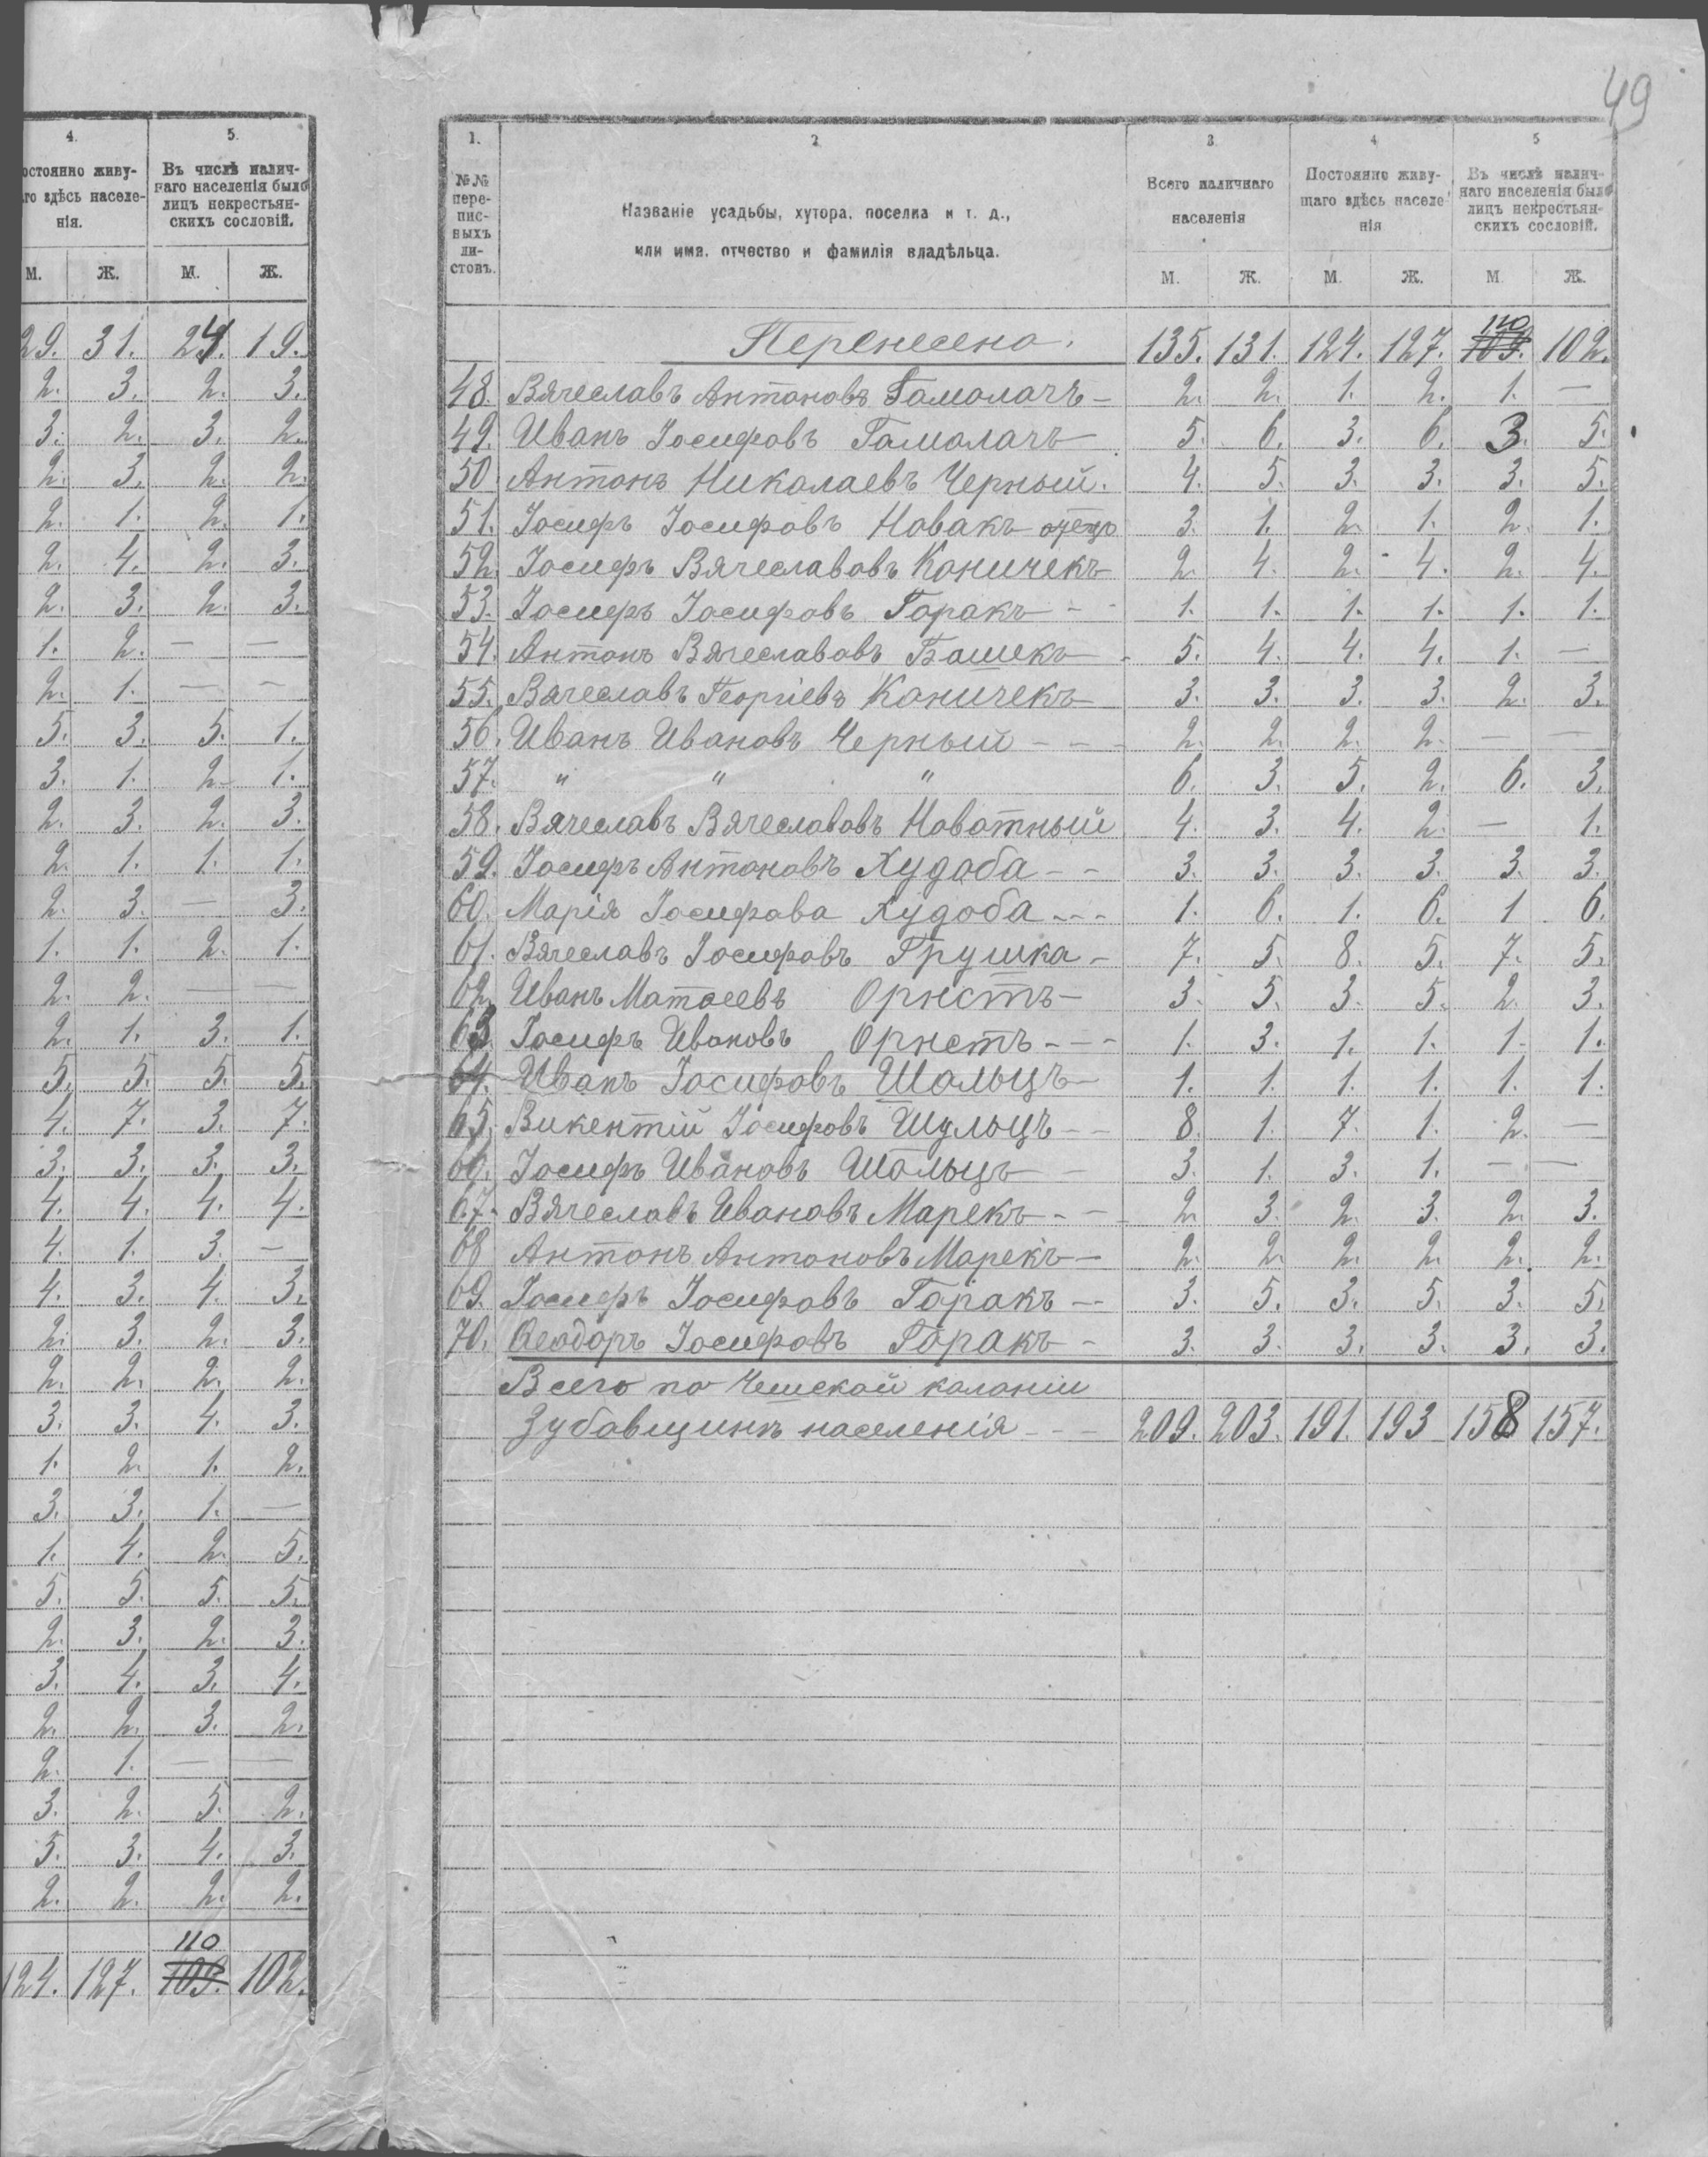 49
4. 5.
остоянно живу- Въ числѣ налич-
го здѣсь населе- наго населенія было
нія. лицъ некрестьян-
скихъ сословій.
М. Ж. М. Ж.
29. 31. 24. 19.
2. 3. 2. 3.
3. 2. 3. 2.
2. 3. 2. 2.
2. 1. 2. 1.
2. 4. 2. 3.
2. 3. 2. 3.
1. 2. — —
2. 1. — —
5. 3. 5. 1.
3. 1. 2. 1.
2. 3. 2. 3.
2. 1. 1. 1.
2. 3. — 3.
1. 1. 2. 1.
2. 2. — —
2. 1. 3. 1.
5. 5. 5. 5.
4. 7. 3. 7.
3. 3. 3. 3.
4. 4. 4. 4.
4. 1. 3. —
4. 3. 4. 3.
2. 3. 2. 3.
2. 2. 2. 2.
3. 3. 4. 3.
1. 2. 1. 2.
3. 3. 1. —
1. 4. 2. 5.
5. 5. 5. 5.
2. 3. 2. 3.
3. 4. 3. 4.
2. 2. 3. 2.
2. 1. — —
3. 2. 5. 2.
5. 3. 4. 3.
2. 2. 2. 2.
110
124. 127. 109. 102.
1. 2 3. 4 5
№№ пере-писныхъ ли-стовъ.
Названіе усадьбы, хутора, поселка и т. д.,
или имя, отчество и фамилія владѣльца.
Всего наличнаго
населенія
Постоянно живу-
щаго здѣсь населе-
нія
Въ числѣ налич-
наго населенія было
лицъ некрестьян-
скихъ сословій.
М. Ж. М. Ж. М. Ж.
110
Перенесено. 135. 131. 124. 127. 109. 102.
48. Вячеславъ Антоновъ Гамолачъ — 2. 2. 1. 2. 1. —
49. Иванъ Іосифовъ Гамолачъ 5. 6. 3. 6. 3. 5.
50. Антонъ Николаевъ Черный. 4. 5. 3. 3. 3. 5.
51. Іосифъ Іосифовъ Новакъ отецъ 3. 1. 2. 1. 2. 1.
52. Іосифъ Вячеславовъ Коничекъ 2. 4. 2. 4. 2. 4.
53. Іосифъ Іосифовъ Горакъ - - 1. 1. 1. 1. 1. 1.
54. Антонъ Вячеславовъ Башекъ - 5. 4. 4. 4. 1. —
55. Вячеславъ Георгіевъ Коничекъ 3. 3. 3. 3. 2. 3.
56. Иванъ Ивановъ Черный - - - 2. 2. 2. 2. — —
57. " " " 6. 3. 5. 2. 6. 3.
58. Вячеславъ Вячеславовъ Новотный 4. 3. 4. 2. — 1.
59. Іосифъ Антоновъ Худоба - - 3. 3. 3. 3. 3. 3.
60. Марія Іосифова Худоба - - - 1. 6. 1. 6. 1 6.
61. Вячеславъ Іосифовъ Грушка - 7. 5. 8. 5. 7. 5.
62. Иванъ Матѳеевъ Орнстъ - 3. 5. 3. 5. 2. 3.
63. Іосифъ Ивановъ Орнстъ - - - 1. 3. 1. 1. 1. 1.
64. Иванъ Іосифовъ Шольцъ - 1. 1. 1. 1. 1. 1.
65. Викентій Іосифовъ Шульцъ - - 8. 1. 7. 1. 2. —
66. Іосифъ Ивановъ Шольцъ - 3. 1. 3. 1. — —
67. Вячеславъ Ивановъ Марекъ - - - 2. 3. 2. 3. 2. 3.
68 Антонъ Антоновъ Марекъ - 2. 2. 2. 2. 2. 2.
69. Іосифъ Іосифовъ Горакъ - 3. 5. 3. 5. 3. 5.
70. Ѳеодоръ Іосифовъ Горакъ - 3. 3. 3. 3. 3. 3.
Всего по Чешской колоніи
Зубовщинъ населенія - - - 209. 203. 191. 193 158 157.